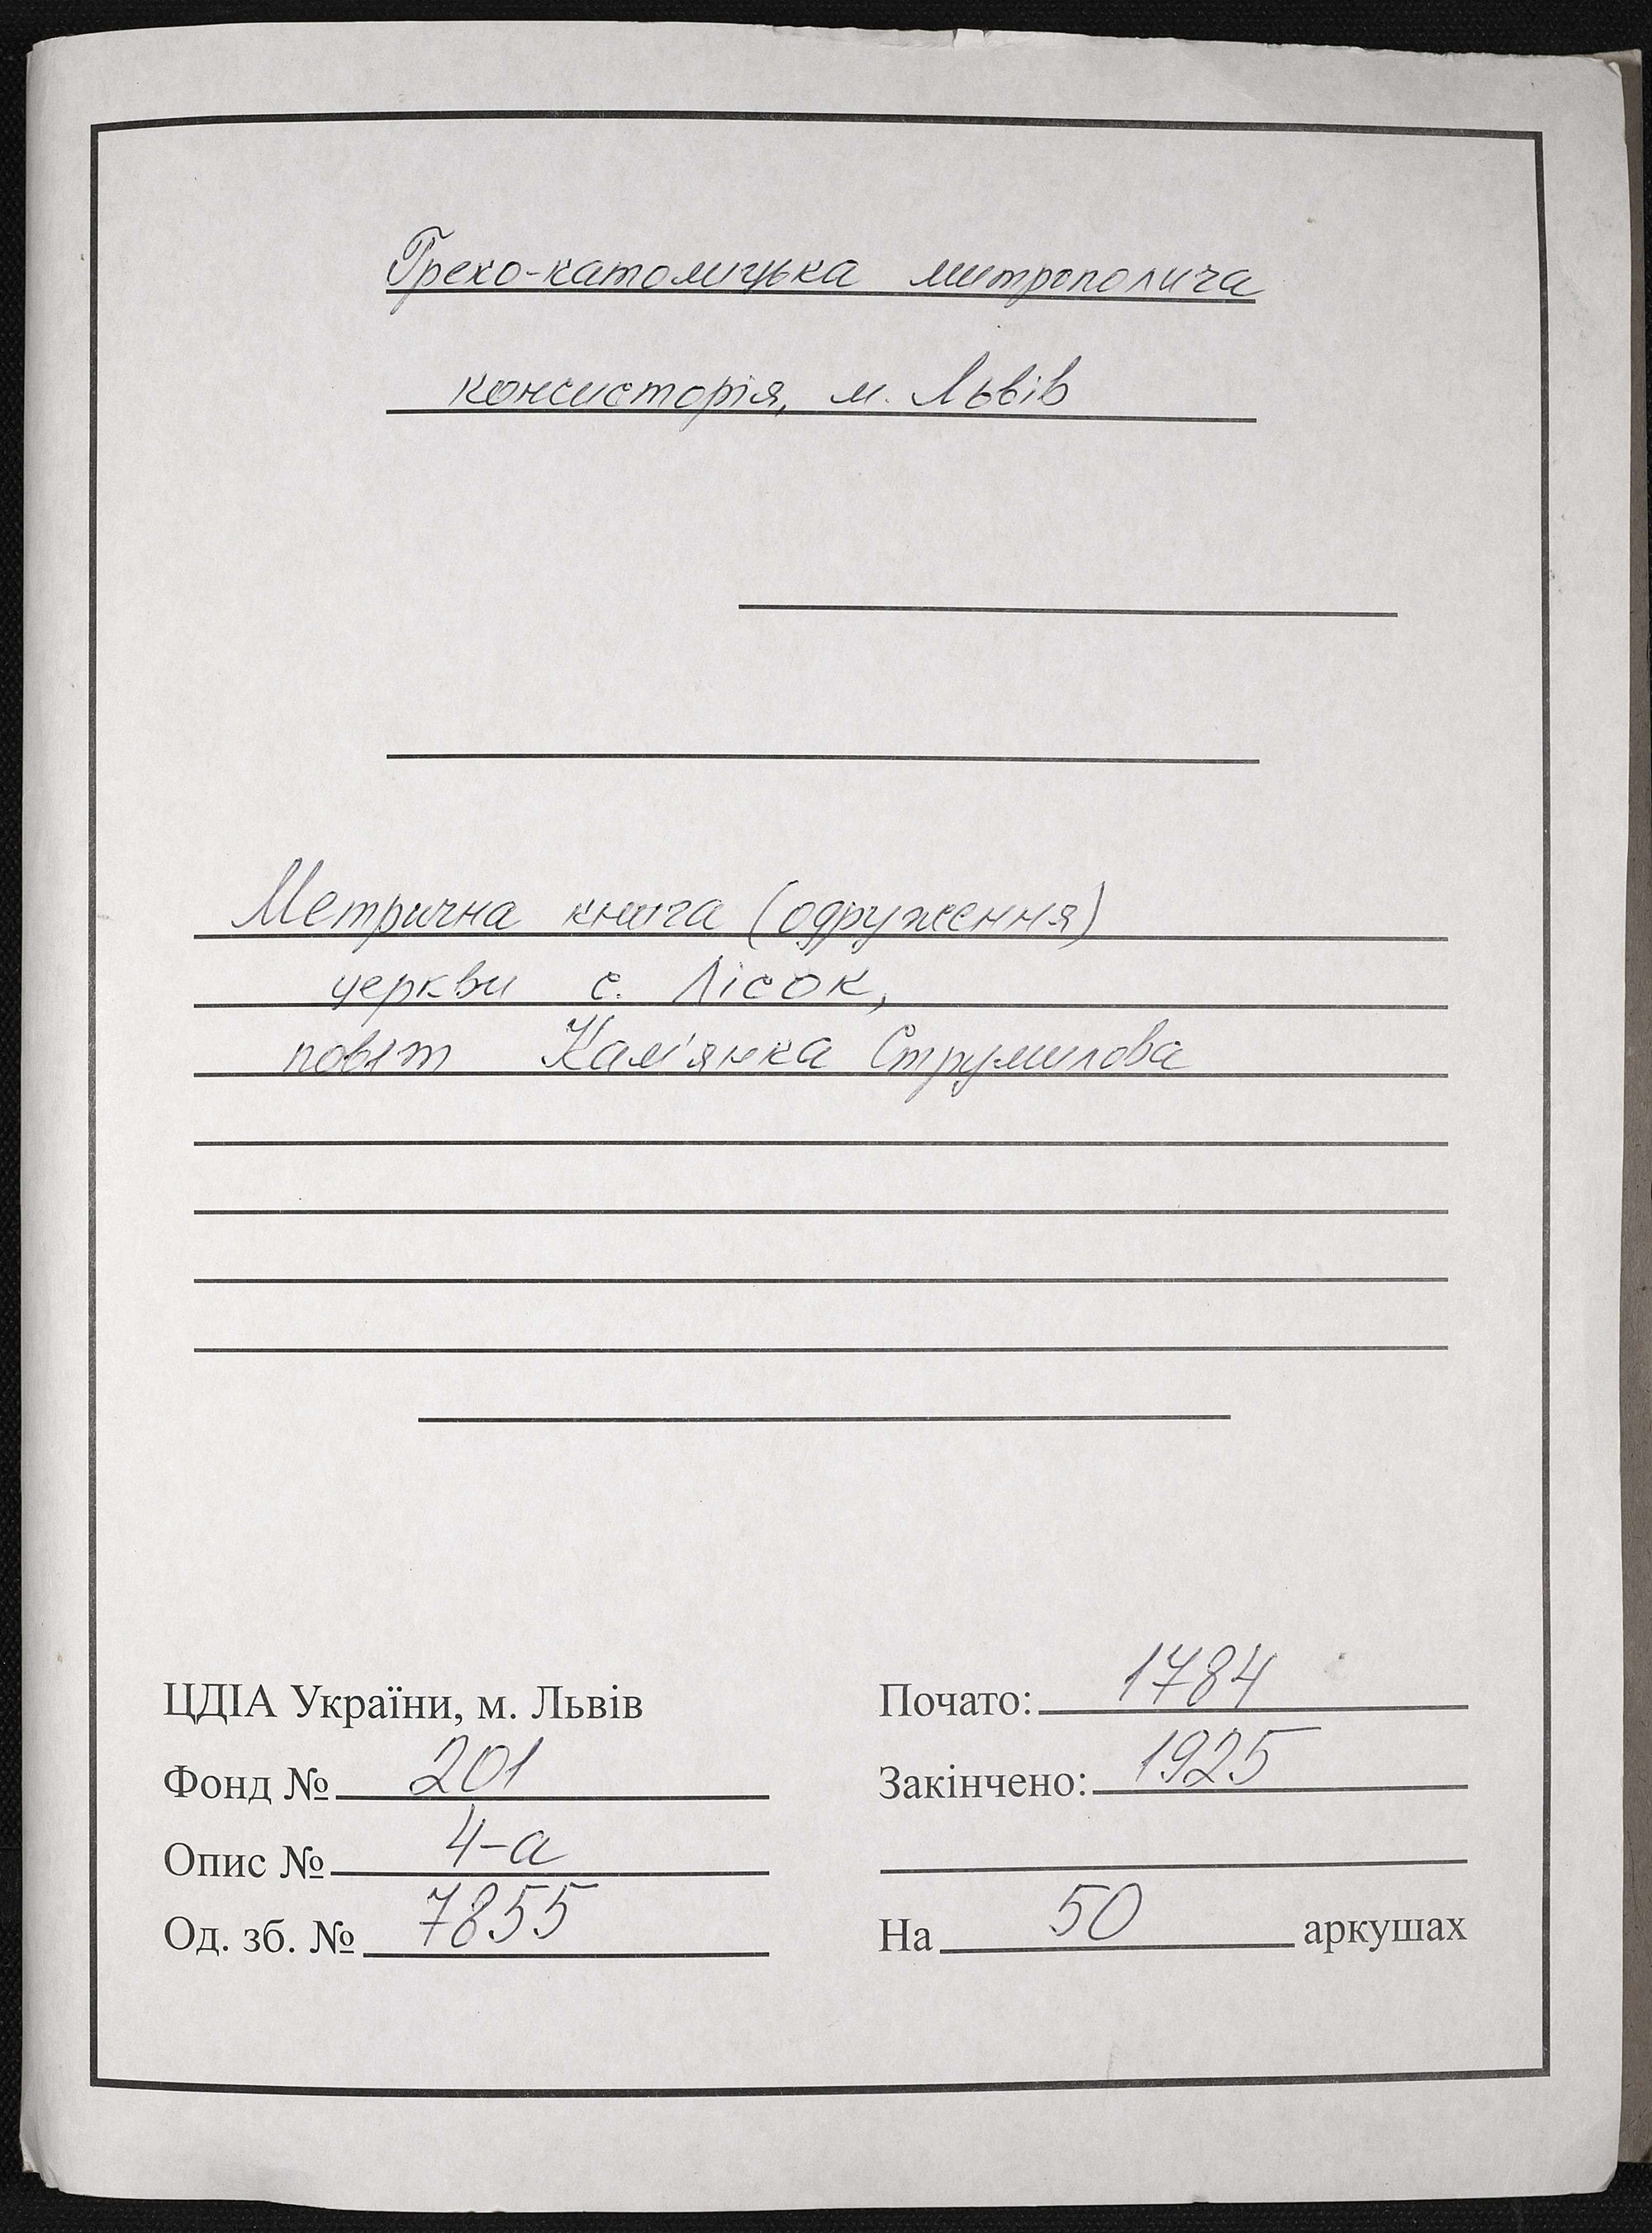 Греко-католицька митрополича
консисторія, м. Львів
Метрична книга (одруження)
церкви с. Лісок,
повіт Кам'янка Струмилова
ЦДІА України, м. Львів
Фонд № 201
Опис № 4-а
Од. зб. № 7855
Почато: 1784
Закінчено: 1925
На 50 аркушах